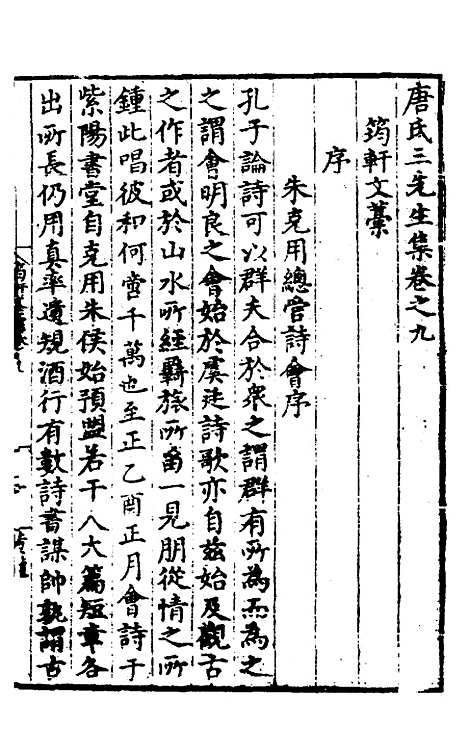 唐氏三先生集卷之九
筠軒文藁
序
朱克用總管詩會序
孔子論詩可以群夫合於衆之謂群有所為而為之
之謂會明良之會始於虞廷詩歌亦自玆始及觀古
之作者或於山水所經羇旅所寓一見朋從情之所
鍾此唱彼和何啻千萬也至正乙酉正月會詩于
紫陽書堂自克用朱侯始預盟若干人大篇短章各
出所長仍用真率遺規酒行有數詩書謀帥孰謂古